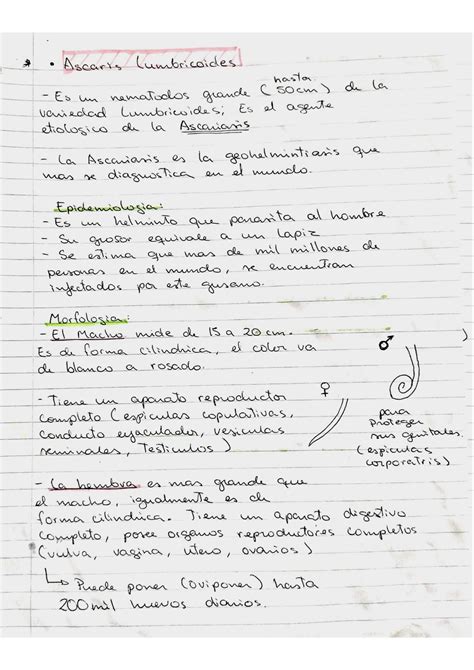 * • Ascaris Lumbricoides
- Es un nematodos grande (hasta 50cm) de la
variedad Lumbricoides; Es el agente
etiologico de la Ascariasis
- La Ascariasis es la geohelmintiasis que
mas se diagnostica en el mundo.
Epidemiologia:
- Es un helminto que parasita al hombre
- Su grosor equivale a un lapiz
- Se estima que mas de mil millones de
personas en el mundo, se encuentran
infectados por este gusano.
Morfologia:
- El Macho mide de 15 a 20 cm.
Es de forma cilindrica, el color va
de blanco a rosado.
♂
- Tiene un aparato reproductor
completo (espiculas copulativas,
conducto eyaculador, vesiculas
seminales, Testiculos)
♀
para
proteger
sus genitales.
(espiculas
corporatris)
- La hembra es mas grande que
el macho, igualmente es de
forma cilindrica. Tiene un aparato digestivo
completo, posee organos reproductores completos
(vulva, vagina, utero, ovarios)
↳ Puede poner (oviponer) hasta
200 mil huevos diarios.